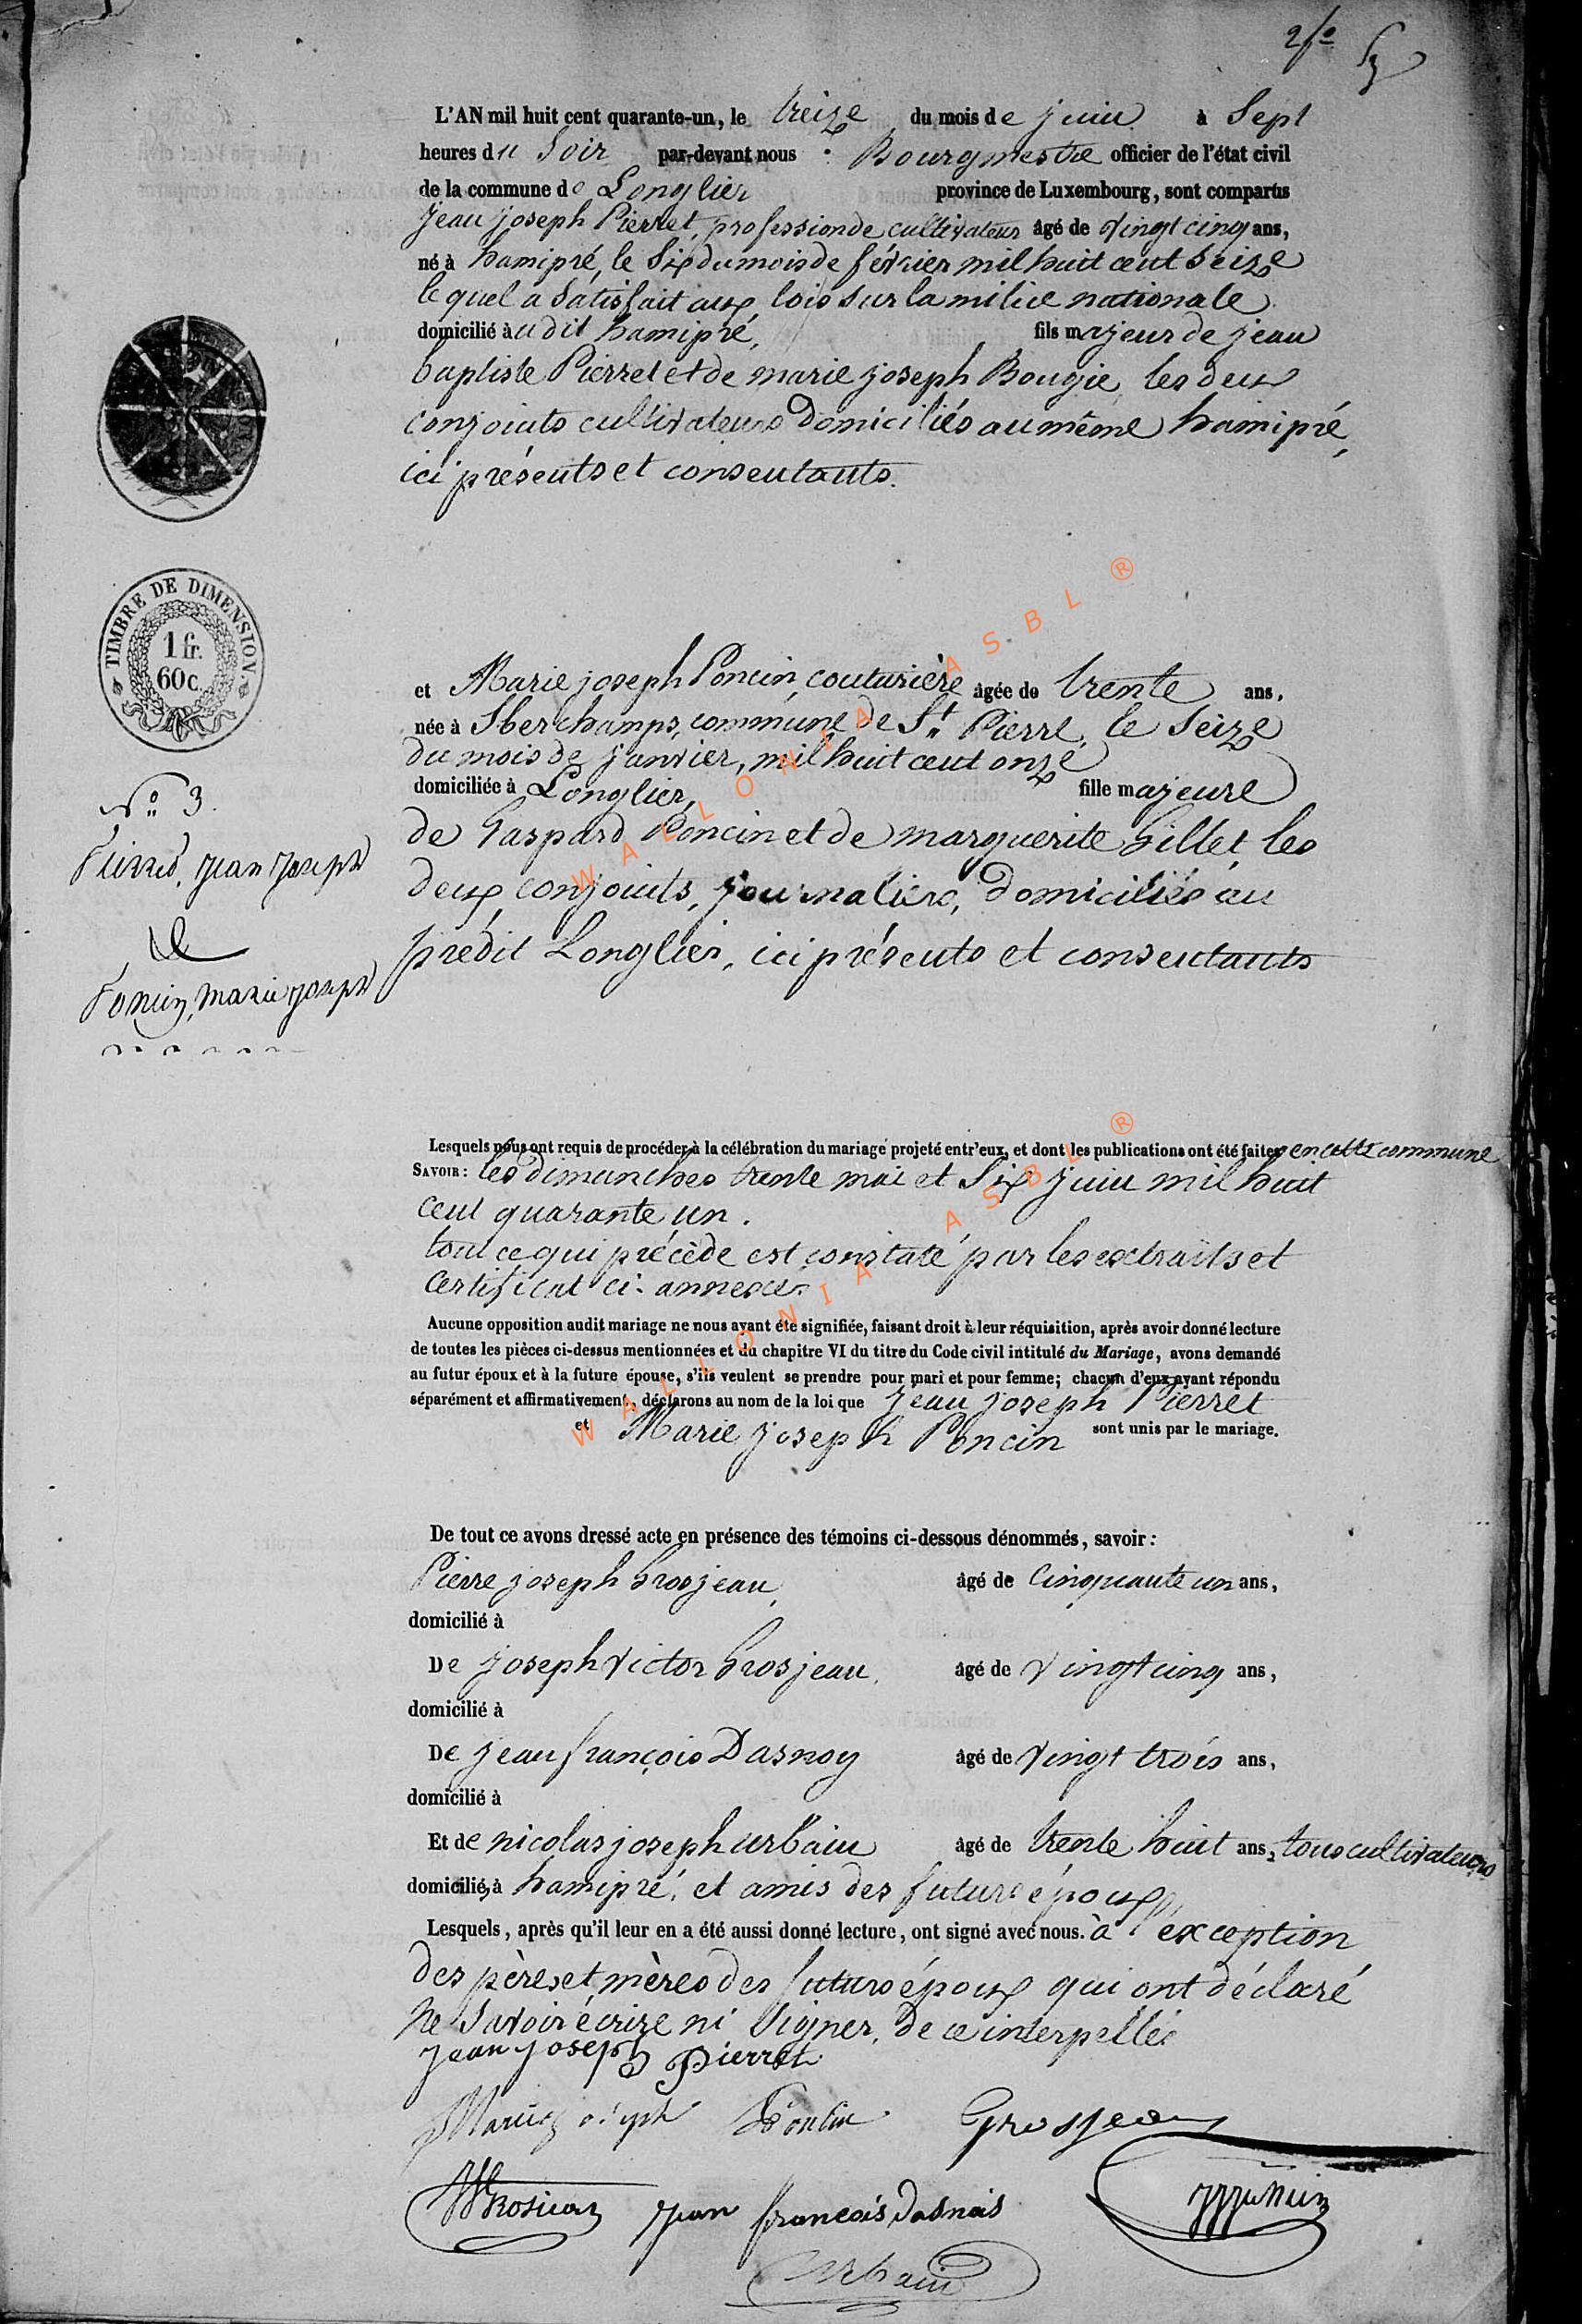 2 fo
L'AN mil huit cent quarante-un, le treize du mois de juin à Sept
heures du Soir par-devant nous Bourgmestre officier de l'état civil
de la commune de Longlier province de Luxembourg, sont comparus
jean joseph Pierret, profession de cultivateur âgé de vingt cinq ans,
né à hamipré, le Six du mois de février mil huit cent Seize
le quel a Satisfait aux lois sur la milice nationale
domicilié àu dit hamipré, fils majeur de jean
baptiste Pierret et de marie joseph Bougie, les deux
conjoints cultivateurs domiciliés au même hamipré,
ici présents et consentants.
TIMBRE DE DIMENSION
1 fr.
60 c.
et Marie joseph Poncin, couturière âgée de trente ans,
née à Sberchamps, commune de St Pierre, le Seize
du mois de janvier, mil huit cent onze
domiciliée à Longlier, fille majeure
de Gaspard Poncin et de marguerite Gillet, les
deux conjoints, journaliers, domiciliés au
prédit Longlier, ici présents et consentants
No 3.
Pierret, jean joseph
&
Poncin, marie joseph
Lesquels nous ont requis de procéder à la célébration du mariage projeté entr'eux, et dont les publications ont été faites en cette commune
SAVOIR: les dimanches trente mai et Six juin mil huit
cent quarante un.
tout ce qui précède est constaté par les extraits et
certificat ci-annexés.
Aucune opposition audit mariage ne nous ayant été signifiée, faisant droit à leur réquisition, après avoir donné lecture
de toutes les pièces ci-dessus mentionnées et du chapitre VI du titre du Code civil intitulé du Mariage, avons demandé
au futur époux et à la future épouse, s'ils veulent se prendre pour mari et pour femme; chacun d'eux ayant répondu
séparément et affirmativement, déclarons au nom de la loi que jean joseph Pierret
et Marie joseph Poncin sont unis par le mariage.
De tout ce avons dressé acte en présence des témoins ci-dessous dénommés, savoir:
Pierre joseph Grosjean, âgé de cinquante un ans,
domicilié à
De joseph victor Grosjean, âgé de vingt cinq ans,
domicilié à
De jean françois Dasnoy âgé de vingt trois ans,
domicilié à
Et de nicolas joseph urbain âgé de trente huit ans, tous cultivateurs
domicilié, à hamipré, et amis des futurs époux,
Lesquels, après qu'il leur en a été aussi donné lecture, ont signé avec nous. à l'exception
des pères et mères des futurs époux qui ont déclaré
ne Savoir écrire ni Signer, de ce interpellés
jean joseph pierret
Marie joseph Poncin Grosjean
Grosjean jean francois dasnois
Urbain
WALLONIA ASBL ®
WALLONIA ASBL ®